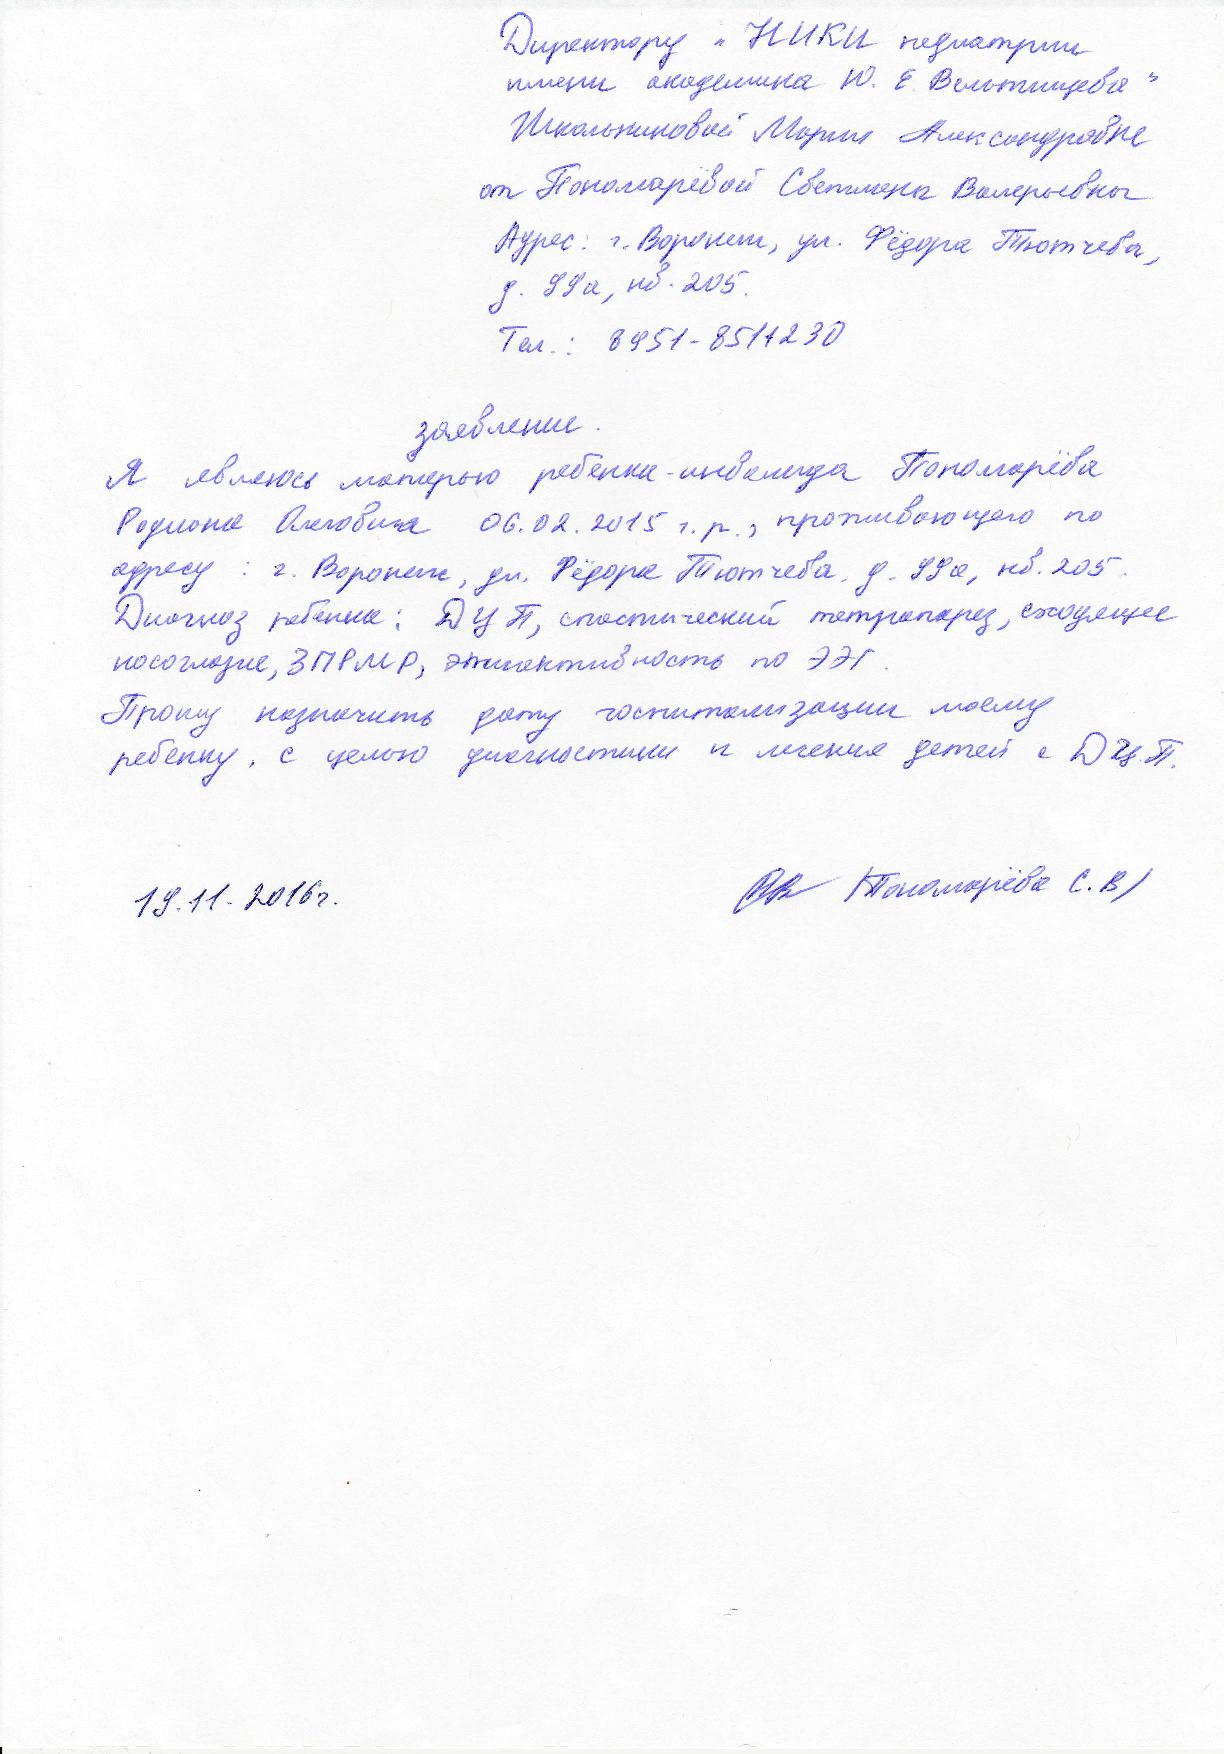 Директору "НИКИ педиатрии
имени академика Ю. Е. Вельтищева"
Школьниковой Марии Александровне
от Пономарёвой Светланы Валерьевны
Адрес: г. Воронеж, ул. Фёдора Тютчева,
д. 99а, кв. 205.
Тел.: 8951-8511230
заявление.
Я являюсь матерью ребенка-инвалида Пономарёва
Родиона Олеговича 06.02.2015 г.р., проживающего по
адресу: г. Воронеж, ул. Фёдора Тютчева. д. 99а, кв. 205.
Диагноз ребенка: ДЦП, спастический тетрапарез, сходящее
косоглазие, ЗПРМР, эпиактивность по ЭЭГ.
Прошу назначить дату госпитализации моему
ребенку. с целью диагностики и лечения детей с ДЦП.
19.11.2016г. (Пономарёва С.В)